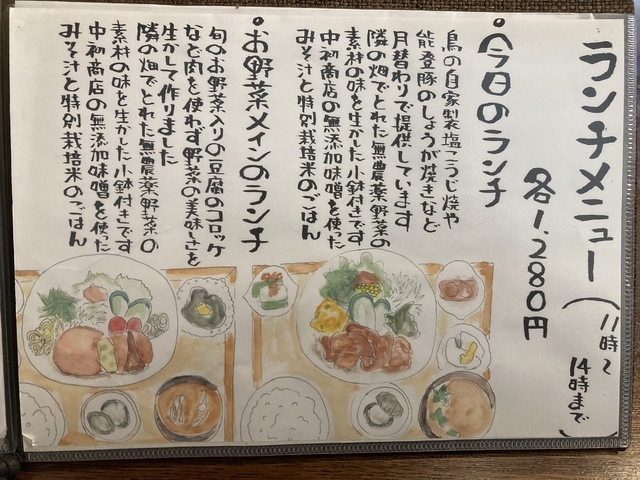 ランチメニュー(11時〜14時まで)
各1,280円
・今日のランチ
鳥の自家製塩こうじ焼や
能登豚のしょうが焼きなど
月替わりで提供しています
隣の畑でとれた無農薬野菜の
素材の味を生かした小鉢付きです
中初商店の無添加味噌を使った
みそ汁と特別栽培米のごはん
・お野菜メインのランチ
旬のお野菜入りの豆腐のコロッケ
など肉を使わず野菜の美味しさを
生かして作りました
隣の畑でとれた無農薬野菜の
素材の味を生かした小鉢付きです
中初商店の無添加味噌を使った
みそ汁と特別栽培米のごはん